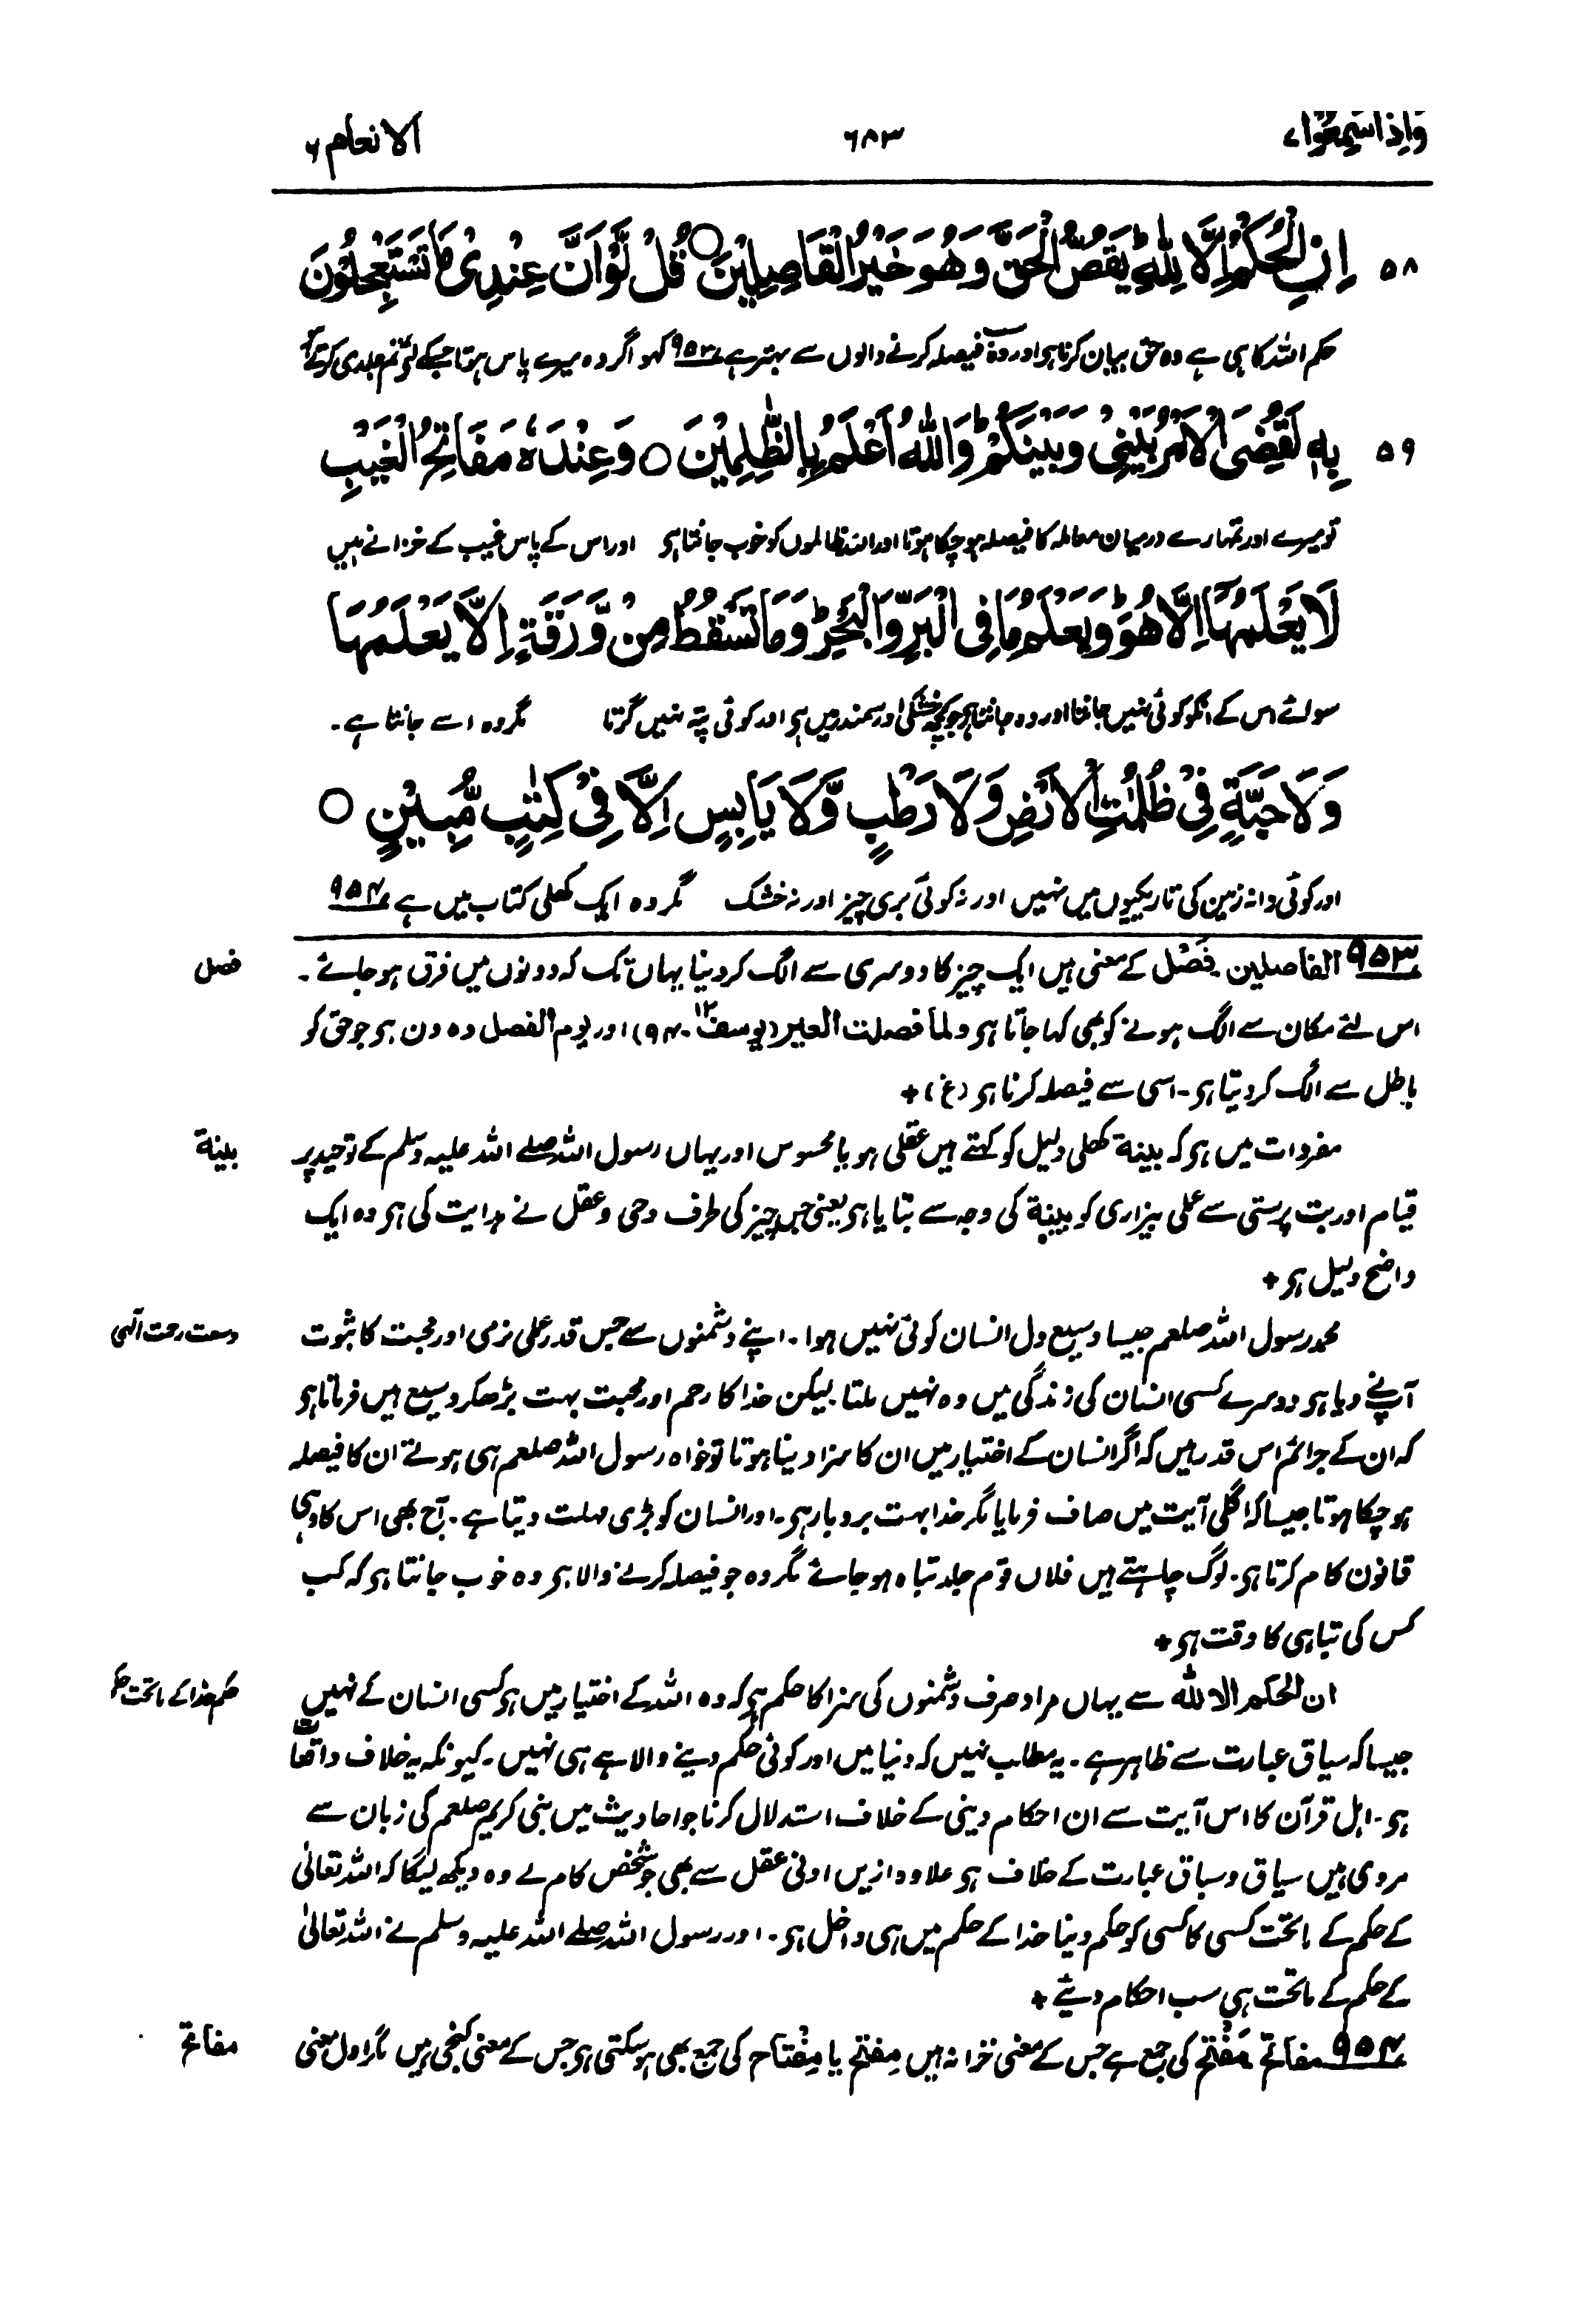 وَاِذَاسَمِعُوْا۷ ۶۸۳ الانعام ۶
۵۸ اِنِ الْحُكْمُ اِلَّا لِلّٰهِ ؕ يَقُصُّ الْحَقَّ وَهُوَ خَيْرُ الْفَاصِلِيْنَ ○ قُلْ لَّوْ اَنَّ عِنْدِيْ مَا تَسْتَعْجِلُوْنَ
حکم اللہ کا ہی ہے وہ حق بیان کرتا ہی اور وہ فیصلہ کرنے والوں سے بہتر ہے ۹۵۳ کہو اگر وہ میرے پاس ہوتا جسکے لئے تم جلدی کرتے ہو
۵۹ بِهٖ لَقُضِيَ الْاَمْرُ بَيْنِيْ وَبَيْنَكُمْ ؕ وَاللّٰهُ اَعْلَمُ بِالظّٰلِمِيْنَ ○ وَعِنْدَهٗ مَفَاتِحُ الْغَيْبِ
تو میرے اور تمہارے درمیان معاملہ کا فیصلہ ہو چکا ہوتا اور اللہ ظالموں کو خوب جانتا ہی اور اس کے پاس غیب کے خزانے ہیں
لَا يَعْلَمُهَا اِلَّا هُوَ ؕ وَيَعْلَمُ مَا فِي الْبَرِّ وَالْبَحْرِ ؕ وَمَا تَسْقُطُ مِنْ وَّرَقَةٍ اِلَّا يَعْلَمُهَا
سوائے اس کے انکو کوئی نہیں جانتا اور وہ جانتا ہی جو کچھ خشکی اور سمندر میں ہی اور کوئی پتہ نہیں گرتا مگر وہ اسے جانتا ہے۔
وَلَا حَبَّةٍ فِيْ ظُلُمٰتِ الْاَرْضِ وَلَا رَطْبٍ وَّلَا يَابِسٍ اِلَّا فِيْ كِتٰبٍ مُّبِيْنٍ ○
اور کوئی دانہ زمین کی تاریکیوں میں نہیں اور نہ کوئی ہری چیز اور نہ خشک مگر وہ ایک کھلی کتاب میں ہے ۹۵۴
۹۵۳ الفاصلین۔ فَصْل کے معنی ہیں ایک چیز کا دوسری سے الگ کر دینا یہاں تک کہ دونوں میں فرق ہو جائے۔ فصل
اس لئے مکان سے الگ ہونے کو بھی کہا جاتا ہی ولما فصلت العیر (یوسف ۱۲۔۹۴) اور یوم الفصل وہ دن ہی جو حق کو
باطل سے الگ کر دیتا ہی۔ اسی سے فیصلہ کرنا ہی (غ) +
مفردات میں ہی کہ بینة کھلی دلیل کو کہتے ہیں عقلی ہو یا محسوس اور یہاں رسول اللہ صلے اللہ علیہ وسلم کے توحید پر بینة
قیام اور بت پرستی سے عملی بیزاری کو بینة کی وجہ سے بتایا ہی یعنی جس چیز کی طرف وحی و عقل نے ہدایت کی ہی وہ ایک
واضح دلیل ہی +
محمد رسول اللہ صلعم جیسا وسیع دل انسان کوئی نہیں ہوا۔ اپنے دشمنوں سے جس قدر عملی نرمی اور محبت کا ثبوت وسعت رحمت الٰہی
آپنے دیا ہی دوسرے کسی انسان کی زندگی میں وہ نہیں ملتا۔ لیکن خدا کا رحم اور محبت بہت بڑھکر وسیع ہیں فرماتا ہی
کہ ان کے جرائم اس قدر ہیں کہ اگر انسان کے اختیار میں ان کا سزا دینا ہوتا تو خواہ رسول اللہ صلعم ہی ہوتے ان کا فیصلہ
ہو چکا ہوتا جیسا کہ اگلی آیت میں صاف فرمایا مگر خدا بہت بردبار ہی۔ اور انسان کو بڑی مہلت دیتا ہے۔ آج بھی اس کا وہی
قانون کام کرتا ہی۔ لوگ چاہتے ہیں فلاں قوم جلد تباہ ہو جائے مگر وہ جو فیصلہ کرنے والا ہی وہ خوب جانتا ہی کہ کب
کس کی تباہی کا وقت ہی +
ان الحکم الا للہ سے یہاں مراد صرف دشمنوں کی سزا کا حکم ہی کہ وہ اللہ کے اختیار میں ہی کسی انسان کے نہیں حکم خدا کے ماتحت حکم
جیسا کہ سیاق عبارت سے ظاہر ہے۔ یہ مطلب نہیں کہ دنیا میں اور کوئی حکم دینے والا ہے ہی نہیں۔ کیونکہ یہ خلاف واقعات
ہی۔ اہل قرآن کا اس آیت سے ان احکام دینی کے خلاف استدلال کرنا جو احادیث میں نبی کریم صلعم کی زبان سے
مروی ہیں سیاق و سباق عبارت کے خلاف ہی علاوہ ازیں ادنیٰ عقل سے بھی جو شخص کام لے وہ دیکھ لیگا کہ اللہ تعالیٰ
کے حکم کے ماتحت کسی کا کسی کو حکم دینا خدا کے حکم میں ہی داخل ہی۔ اور رسول اللہ صلے اللہ علیہ وسلم نے اللہ تعالیٰ
کے حکم کے ماتحت ہی سب احکام دیئے +
۹۵۴ مفاتح۔ مَفْتَح کی جمع ہے جس کے معنی خزانہ ہیں مِفتح یا مِفْتَاح کی جمع بھی ہو سکتی ہی جس کے معنی کنجی ہیں مگر اول معنی مفاتح